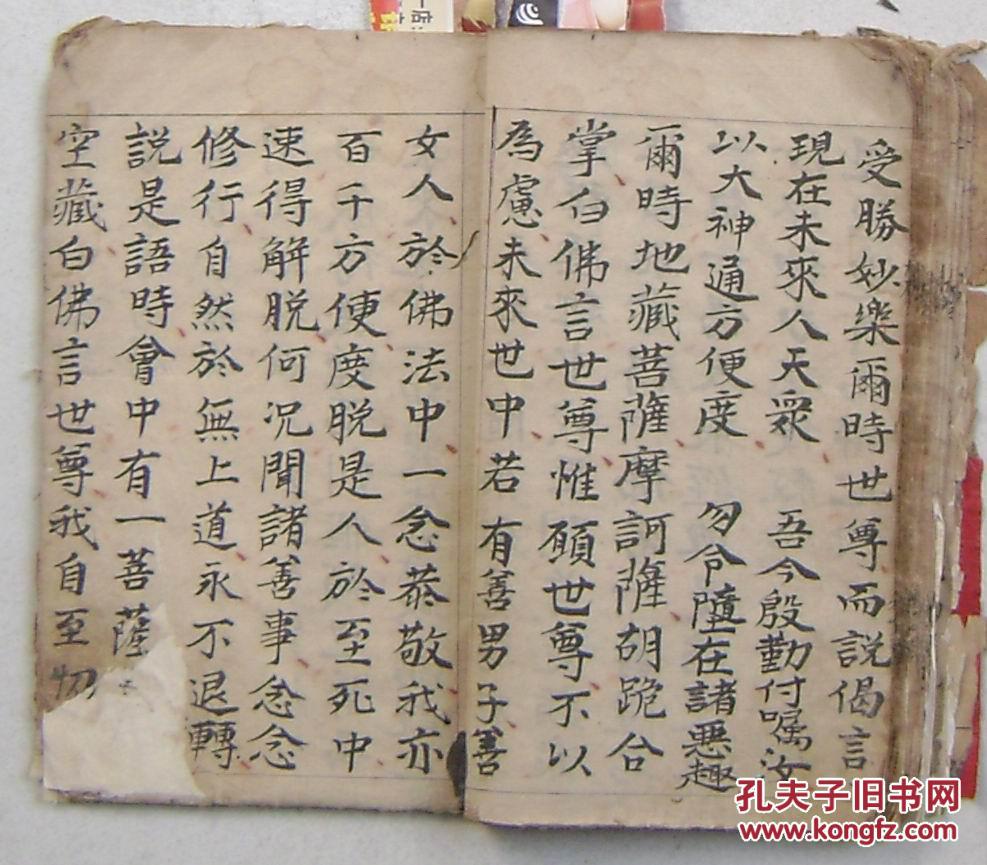 受勝妙樂爾時世尊而說偈言
現在未來人天眾 吾今殷勤付嘱汝
以大神通方便度 勿令墮在諸惡趣
爾時地藏菩薩摩訶薩胡跪合
掌白佛言世尊惟願世尊不以
為慮未來世中若有善男子善
女人於佛法中一念恭敬我亦
百千方便度脱是人於至死中
速得解脱何況聞諸善事念念
修行自然於無上道永不退轉
說是語時會中有一菩薩
空藏白佛言世尊我自至忉
孔夫子旧书网
www.kongfz.com